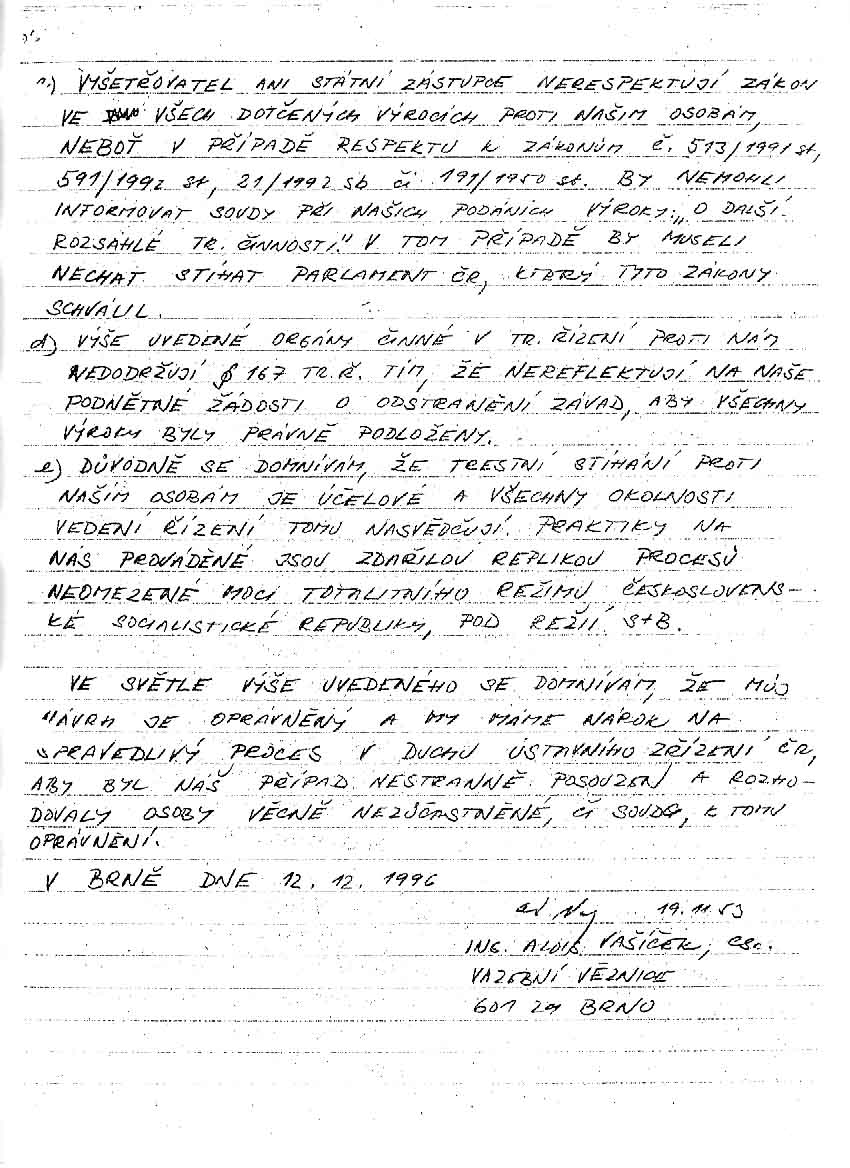 ) VYŠETŘOVATEL ANI STÁTNÍ ZÁSTUPCE NERESPEKTUJÍ ZÁKON
VE VŠECH DOTČENÝCH VÝROCÍCH PROTI NAŠIM OSOBÁM,
NEBOŤ V PŘÍPADĚ RESPEKTU K ZÁKONŮM Č. 513/1991 st,
591/1992 st, 21/1992 sb či 191/1950 st. BY NEMOHLI
INFORMOVAT SOUDY PŘI NAŠICH PODÁNÍCH VÝROKY: „O DALŠÍ
ROZSÁHLÉ TR. ČINNOSTI." V TOM PŘÍPADĚ BY MUSELI
NECHAT STÍHAT PARLAMENT ČR, KTERÝ TYTO ZÁKONY
SCHVÁLIL.
d) VÝŠE UVEDENÉ ORGÁNY ČINNÉ V TR. ŘÍZENÍ PROTI NÁM
NEDODRŽUJÍ § 167 TR.Ř. TÍM, ŽE NEREFLEKTUJÍ NA NAŠE
PODNĚTNÉ ŽÁDOSTI O ODSTRANĚNÍ ZÁVAD, ABY VŠECHNY
VÝROKY BYLY PRÁVNĚ PODLOŽENY.
e) DŮVODNĚ SE DOMNÍVÁM, ŽE TRESTNÍ STÍHÁNÍ PROTI
NAŠIM OSOBÁM JE ÚČELOVÉ A VŠECHNY OKOLNOSTI
VEDENÍ ŘÍZENÍ TOMU NASVĚDČUJÍ. PRAKTIKY NA
NÁS PROVÁDĚNÉ JSOU ZDAŘILOU REPLIKOU PROCESŮ
NEOMEZENÉ MOCI TOTALITNÍHO REŽIMU ČESKOSLOVENS-
KÉ SOCIALISTICKÉ REPUBLIKY, POD REŽIÍ StB.
VE SVĚTLE VÝŠE UVEDENÉHO SE DOMNÍVÁM, ŽE MŮJ
NÁVRH JE OPRÁVNĚNÝ A MY MÁME NÁROK NA
SPRAVEDLIVÝ PROCES V DUCHU ÚSTAVNÍHO ZŘÍZENÍ ČR,
ABY BYL NÁŠ PŘÍPAD NESTRANNĚ POSOUZEN A ROZHO-
DOVALY OSOBY VĚCNĚ NEZÚČASTNĚNÉ, ČI SOUDY, K TOMU
OPRÁVNĚNÍ.
V BRNĚ DNE 12. 12. 1996
19.11.53
ING. ALOIS VAŠÍČEK, CSc.
VAZEBNÍ VĚZNICE
BRNO